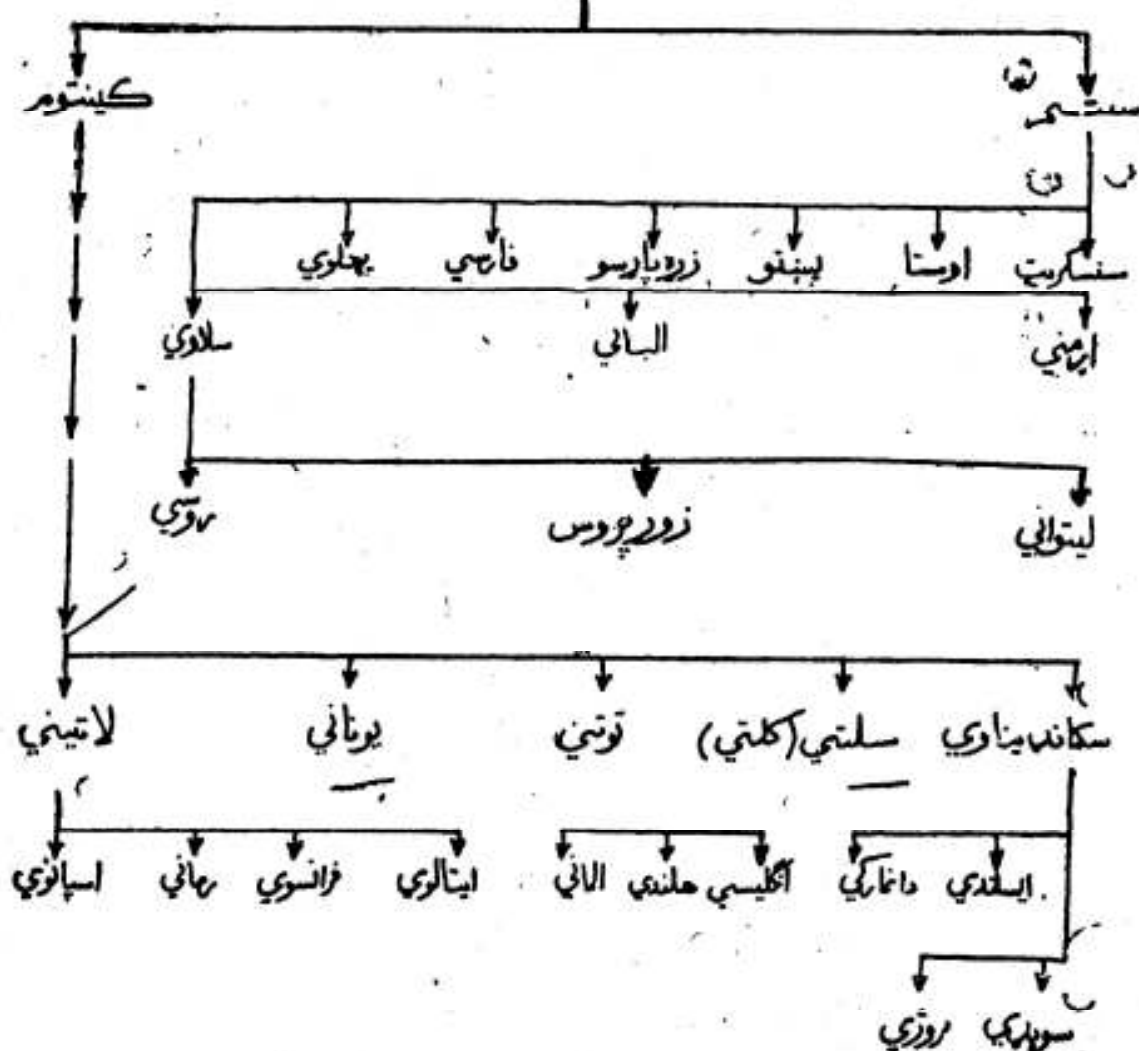 کينتوم
سنسکريټ اوستا پښتو زړه پارسو فارسي پهلوي
ارمني الباني سلاوي
ليتواني زوړ پروس روسي
سکانډيناوي سلتي (کلتي) توتني يوناني لاتيني
ايسلندي ډنمارکي انګليسي هلندي الماني ايتالوي فرانسوي رماني اسپانوي
سويډني